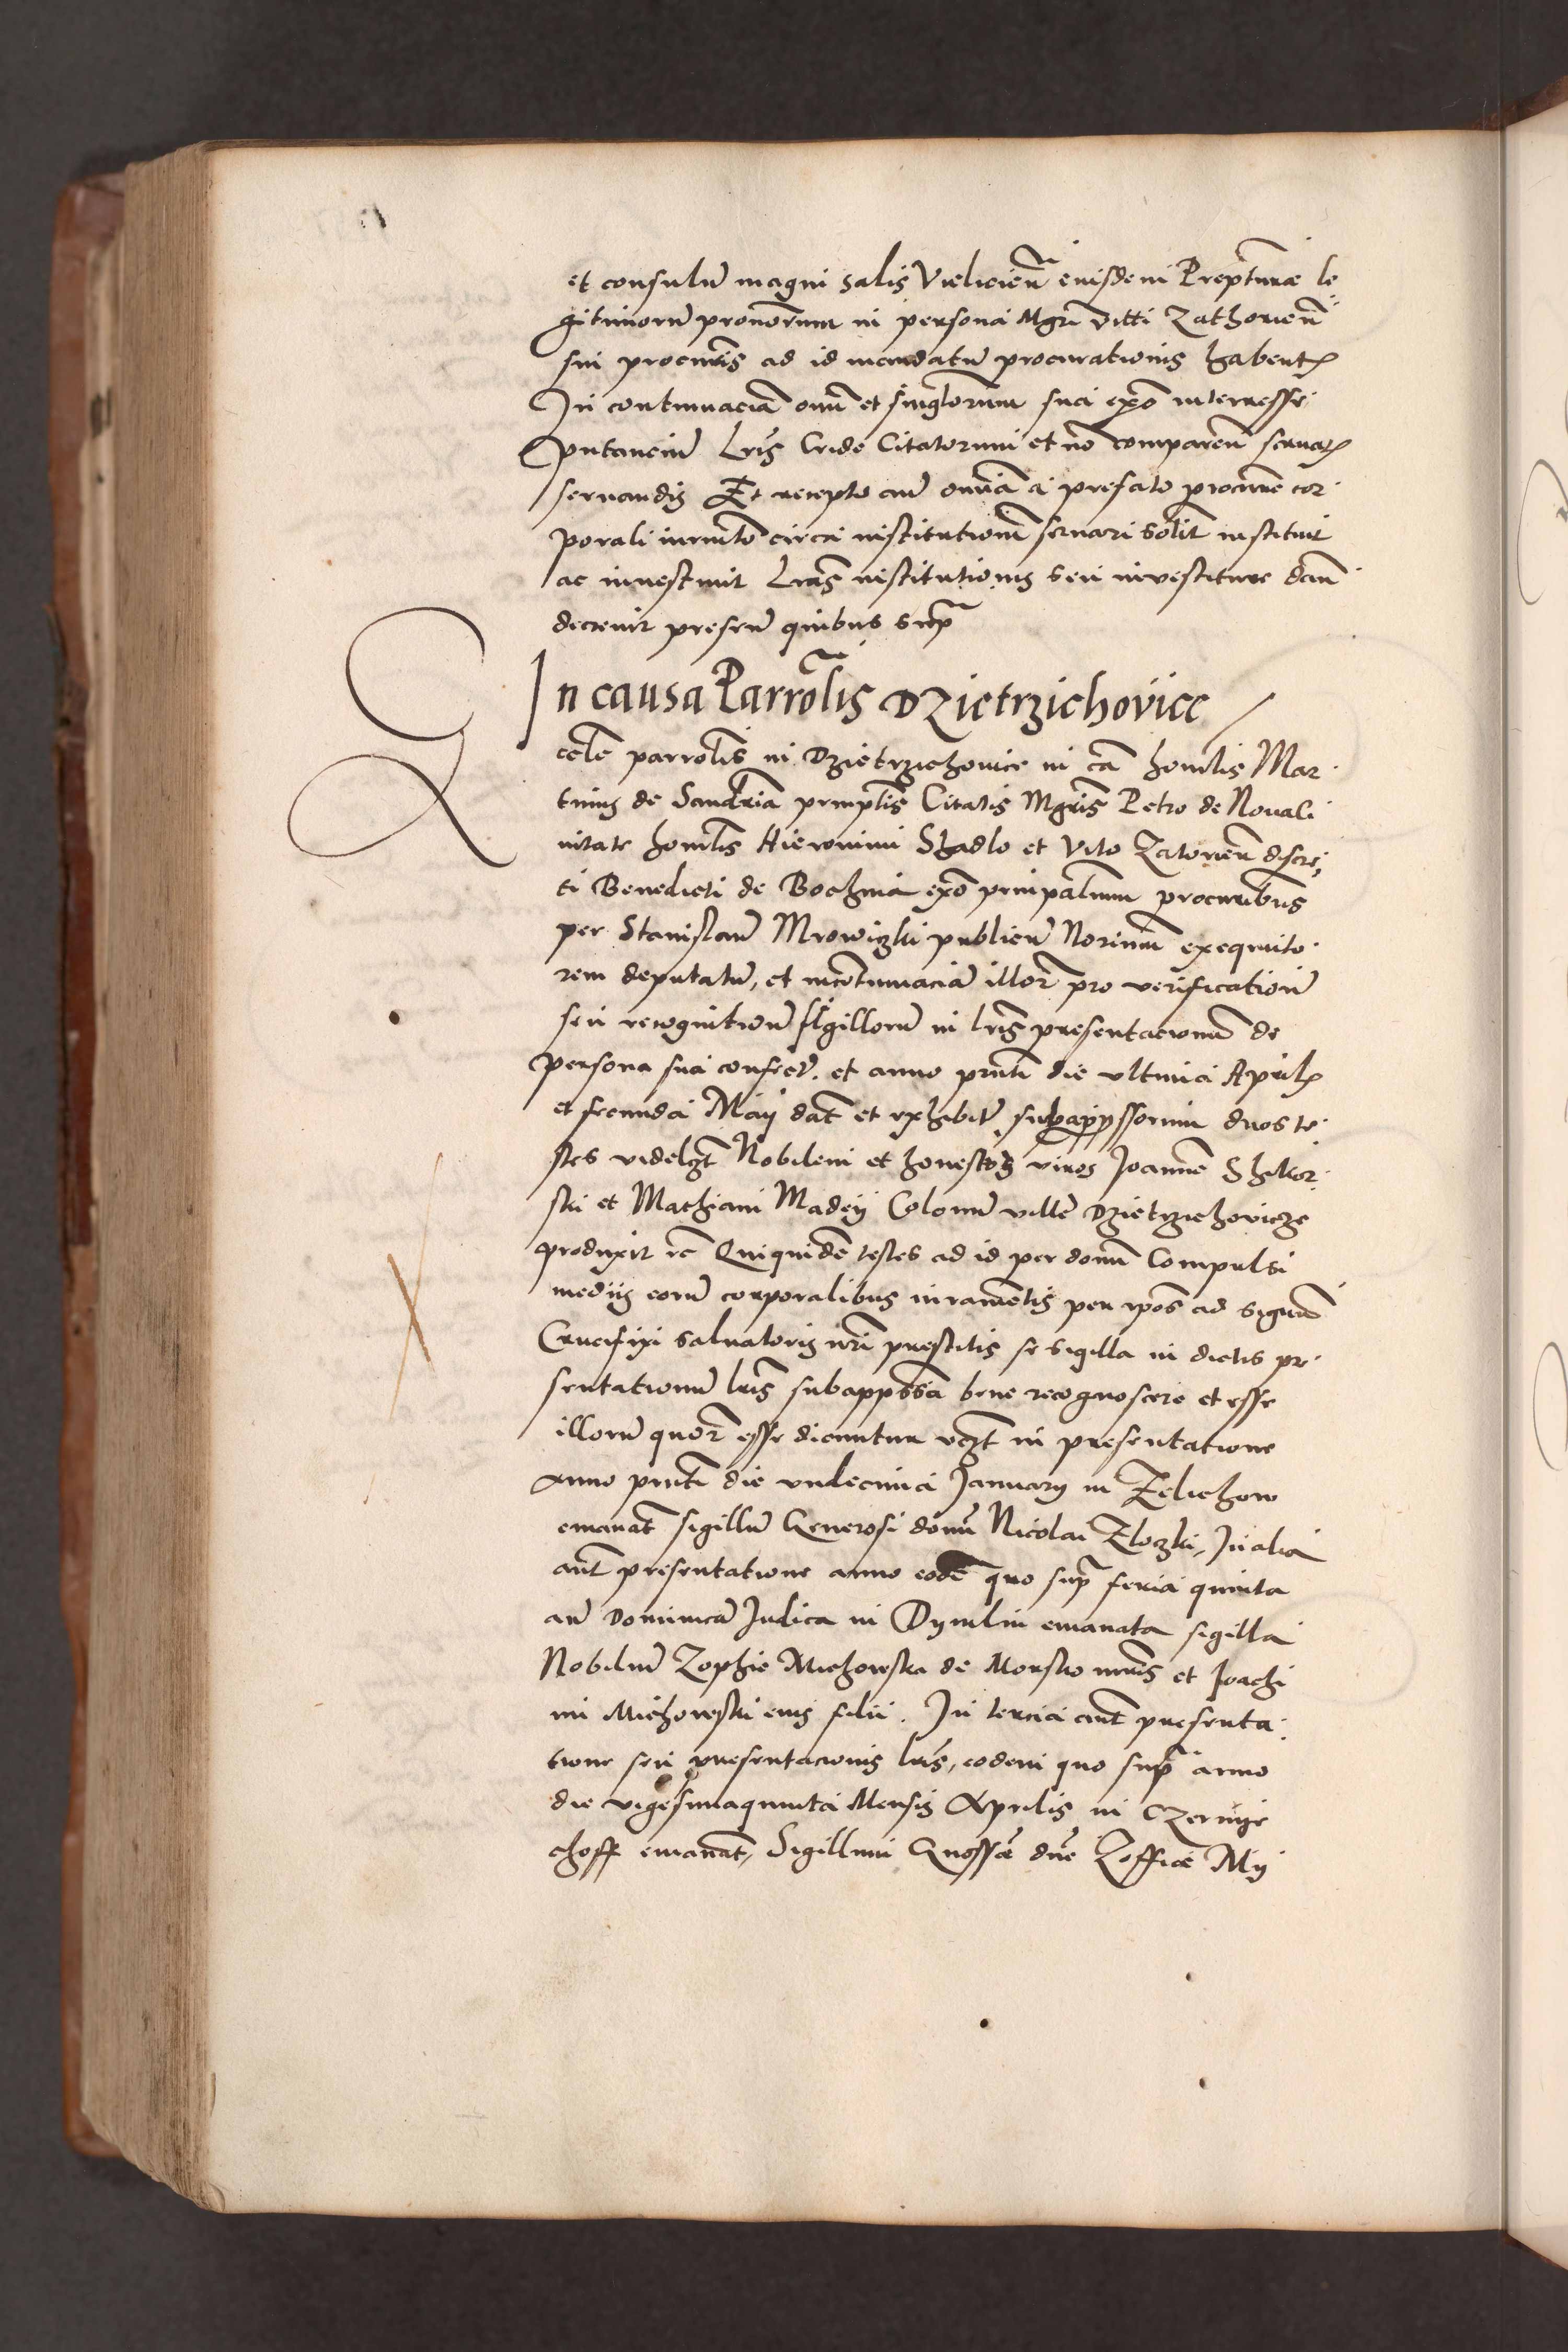 et consulũ magni salis Vieliciensͫ eiusdem Prepturae le
gitimorũ pronorum in persona Mgri Vitti Zathorieñ
sui procuris ad id mandatũ procurationis habentꝭ
In contumaciã oniũ et singlorum sua expō interesse
putanciũ Lris Cride Citatorum et nō compareñ servatꝭ
servandis Et recepto aũ omĩa a prefato procure cor
porali iurmto circa institutionẽ servari solit instituit
ac investivit Lras institutionis seu investiture dañ
decrevit preseñ quibus supra
In causa Parrōlis Dzietrzichovice
ccle parrolis in Dzietrzichovice in cā honilis Mar
tinus de Sandomia prinplis Citatis Mgris Petro de Novaci
vitate honilis Hieronimi Skadlo et Vito Zatorieñ discre
ti Benedicti de Bochnia expō prinpalium procuribus
per Stanislaũ Mrowiczki publicũ Noriũ exequuto
rem deputatũ, et incōtumaciã illorʒ pro verificationẽ
seu recognitionẽ sigillorũ in lris presentacionum de
persona sua confectʒ et anno prnti die ultima Aprilꝭ
et secunda Maij dat et exhibitʒ subapp͞ssorum duos te
stes videlzt Nobilem et honestos viros Joannẽ Shikor
ski et Mathiam Madeij Colonũ ville Dzietrzichovicze
produxit rc͞ Quiquidẽ testes ad id per domũ Compulsi
mediis eorũ corporalibus iuramẽtis per ipos ad signũ
Crucifixi salvatoris nri prestitis se sigilla in dictis pre
sentationũ lris subapp͞ssa bene recognoscere et esse
illorũ quorʒ esse dicuntur vczt in presentatione
anno prnti die undecima January in Zelichow
emanat sigillũ Generosi domi Nicolai Zloczki, In alia
aũt presentatione anno eodẽ quo sup feria quinta
añ Dominicã Judica in Dymlin emanata sigilla
Nobiliũ Zophie Michowska de Morsko mris et Joachi
mi Michowski eius filii. In tercia aũt presenta
tione seu presentacionis lris, eodem quo sup anno
die vigesimaquinta Mensis Aprilis in Czernije
choff emanat, Sigillum Gnossae dne Zoffiae Mij